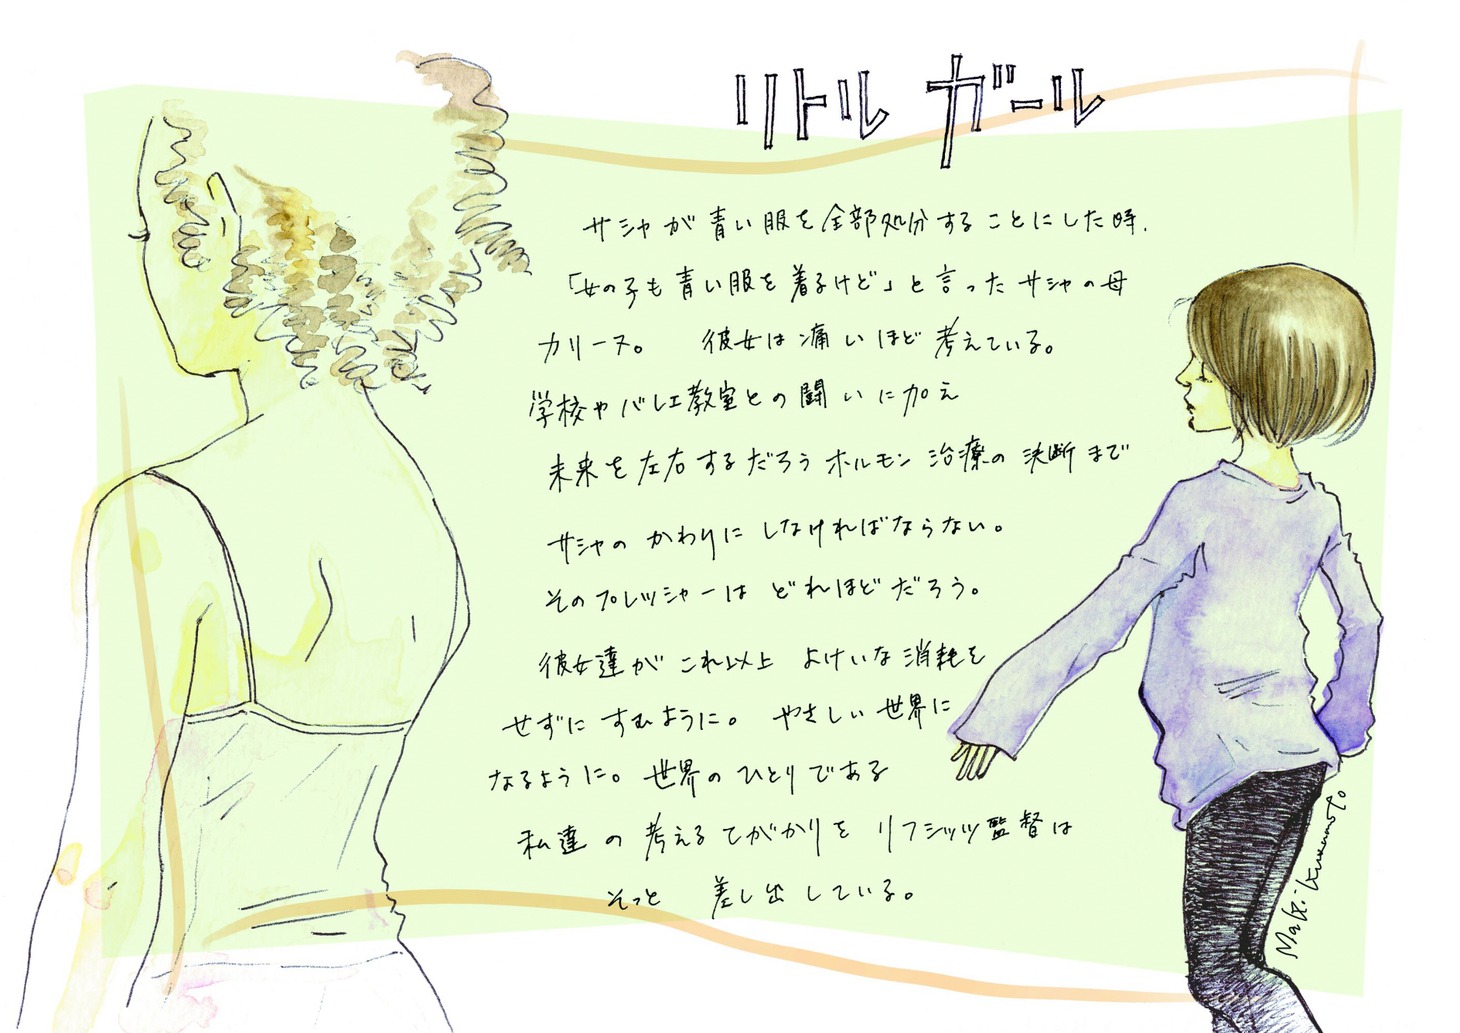 リトル ガール
サシャが青い服を全部処分することにした時、
「女の子も青い服を着るけど」と言ったサシャの母
カリーヌ。 彼女は痛いほど考えている。
学校やバレエ教室との闘いに加え
未来を左右するだろうホルモン治療の決断まで
サシャのかわりにしなければならない。
そのプレッシャーはどれほどだろう。
彼女達がこれ以上 よけいな消耗を
せずにすむように。 やさしい世界に
なるように。世界のひとりである
私達の考えるてがかりをリフシッツ監督は
そっと 差し出している。
Maki.Kusumoto